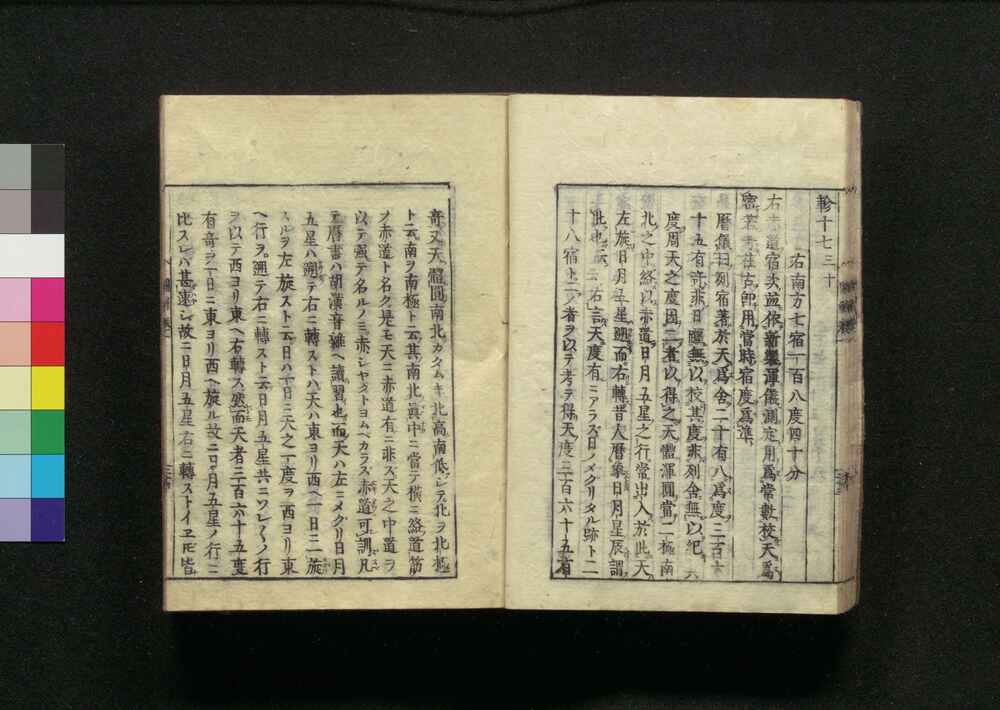 軫十七三十
右南方七宿一百八度四十分
右赤道宿次並依新製渾儀測定用爲常數校天爲
密若考往古即用當時宿度爲準
曆儀曰列宿著於天爲舍二十有八爲度三百六
十五有奇非日躔無以校其度非列舍無以紀
度周天之度因二者以得之天體渾圓當二極南
北之中絡以赤道日月五星之行常出入於此天
左旋日月五星遡而右轉昔人曆象日月星辰謂
此也
天度有ニアラズ日ノメグリタル跡ト二
十八宿ト二ノ者ヲ以テ考テ得天度三百六十五有
奇又天體圓南北カタムキ北高南低シテ北ヲ北極
ト云南ヲ南極ト云其南北眞中ニ當テ横ニ絡道筋
ノ赤道ト名ク是モ天ニ赤道有ニ非ズ天之中道ヲ
以テ强テ名ルノミ赤シヤクトヨムベカラズ赤道可謂凡
テ曆書ハ胡漢音雖ヘ讀習也而天ハ左ニメグリ日月
五星ハ遡テ右ニ轉ストハ天ハ東ヨリ西ヘ一日ニ一旋
スルヲ左旋スト云日ハ一日ニ天之一度ヲ西ヨリ東
ヘ行ヲ遡テ右ニ轉スト云日月五星共ニソレ〳〵ノ行
ヲ以テ西ヨリ東ヘ右轉ス然而天者三百六十五度
有奇ヲ一日ニ東ヨリ西ヘ旋ル故ニ日月五星ノ行ニ
比スレバ甚速シ故ニ日月五星右ニ轉ストイヱ𪜈皆